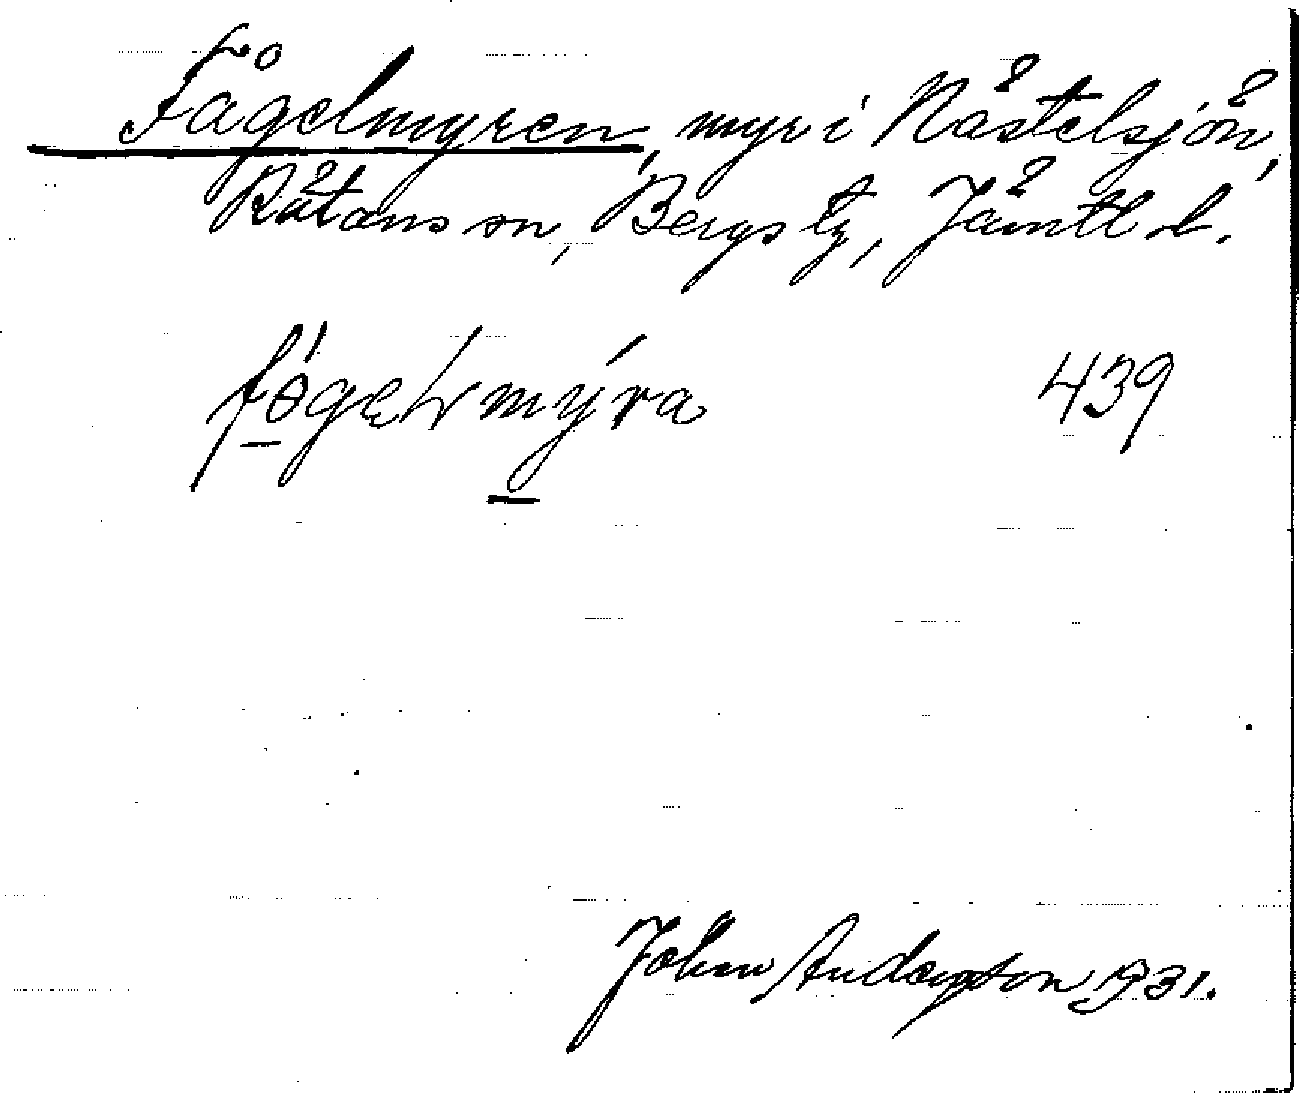 Fågelmyren, myr i Nästelsjön,
Rätans sn, Bergs tg, Jämtl l.
439
John Anderson 1931.